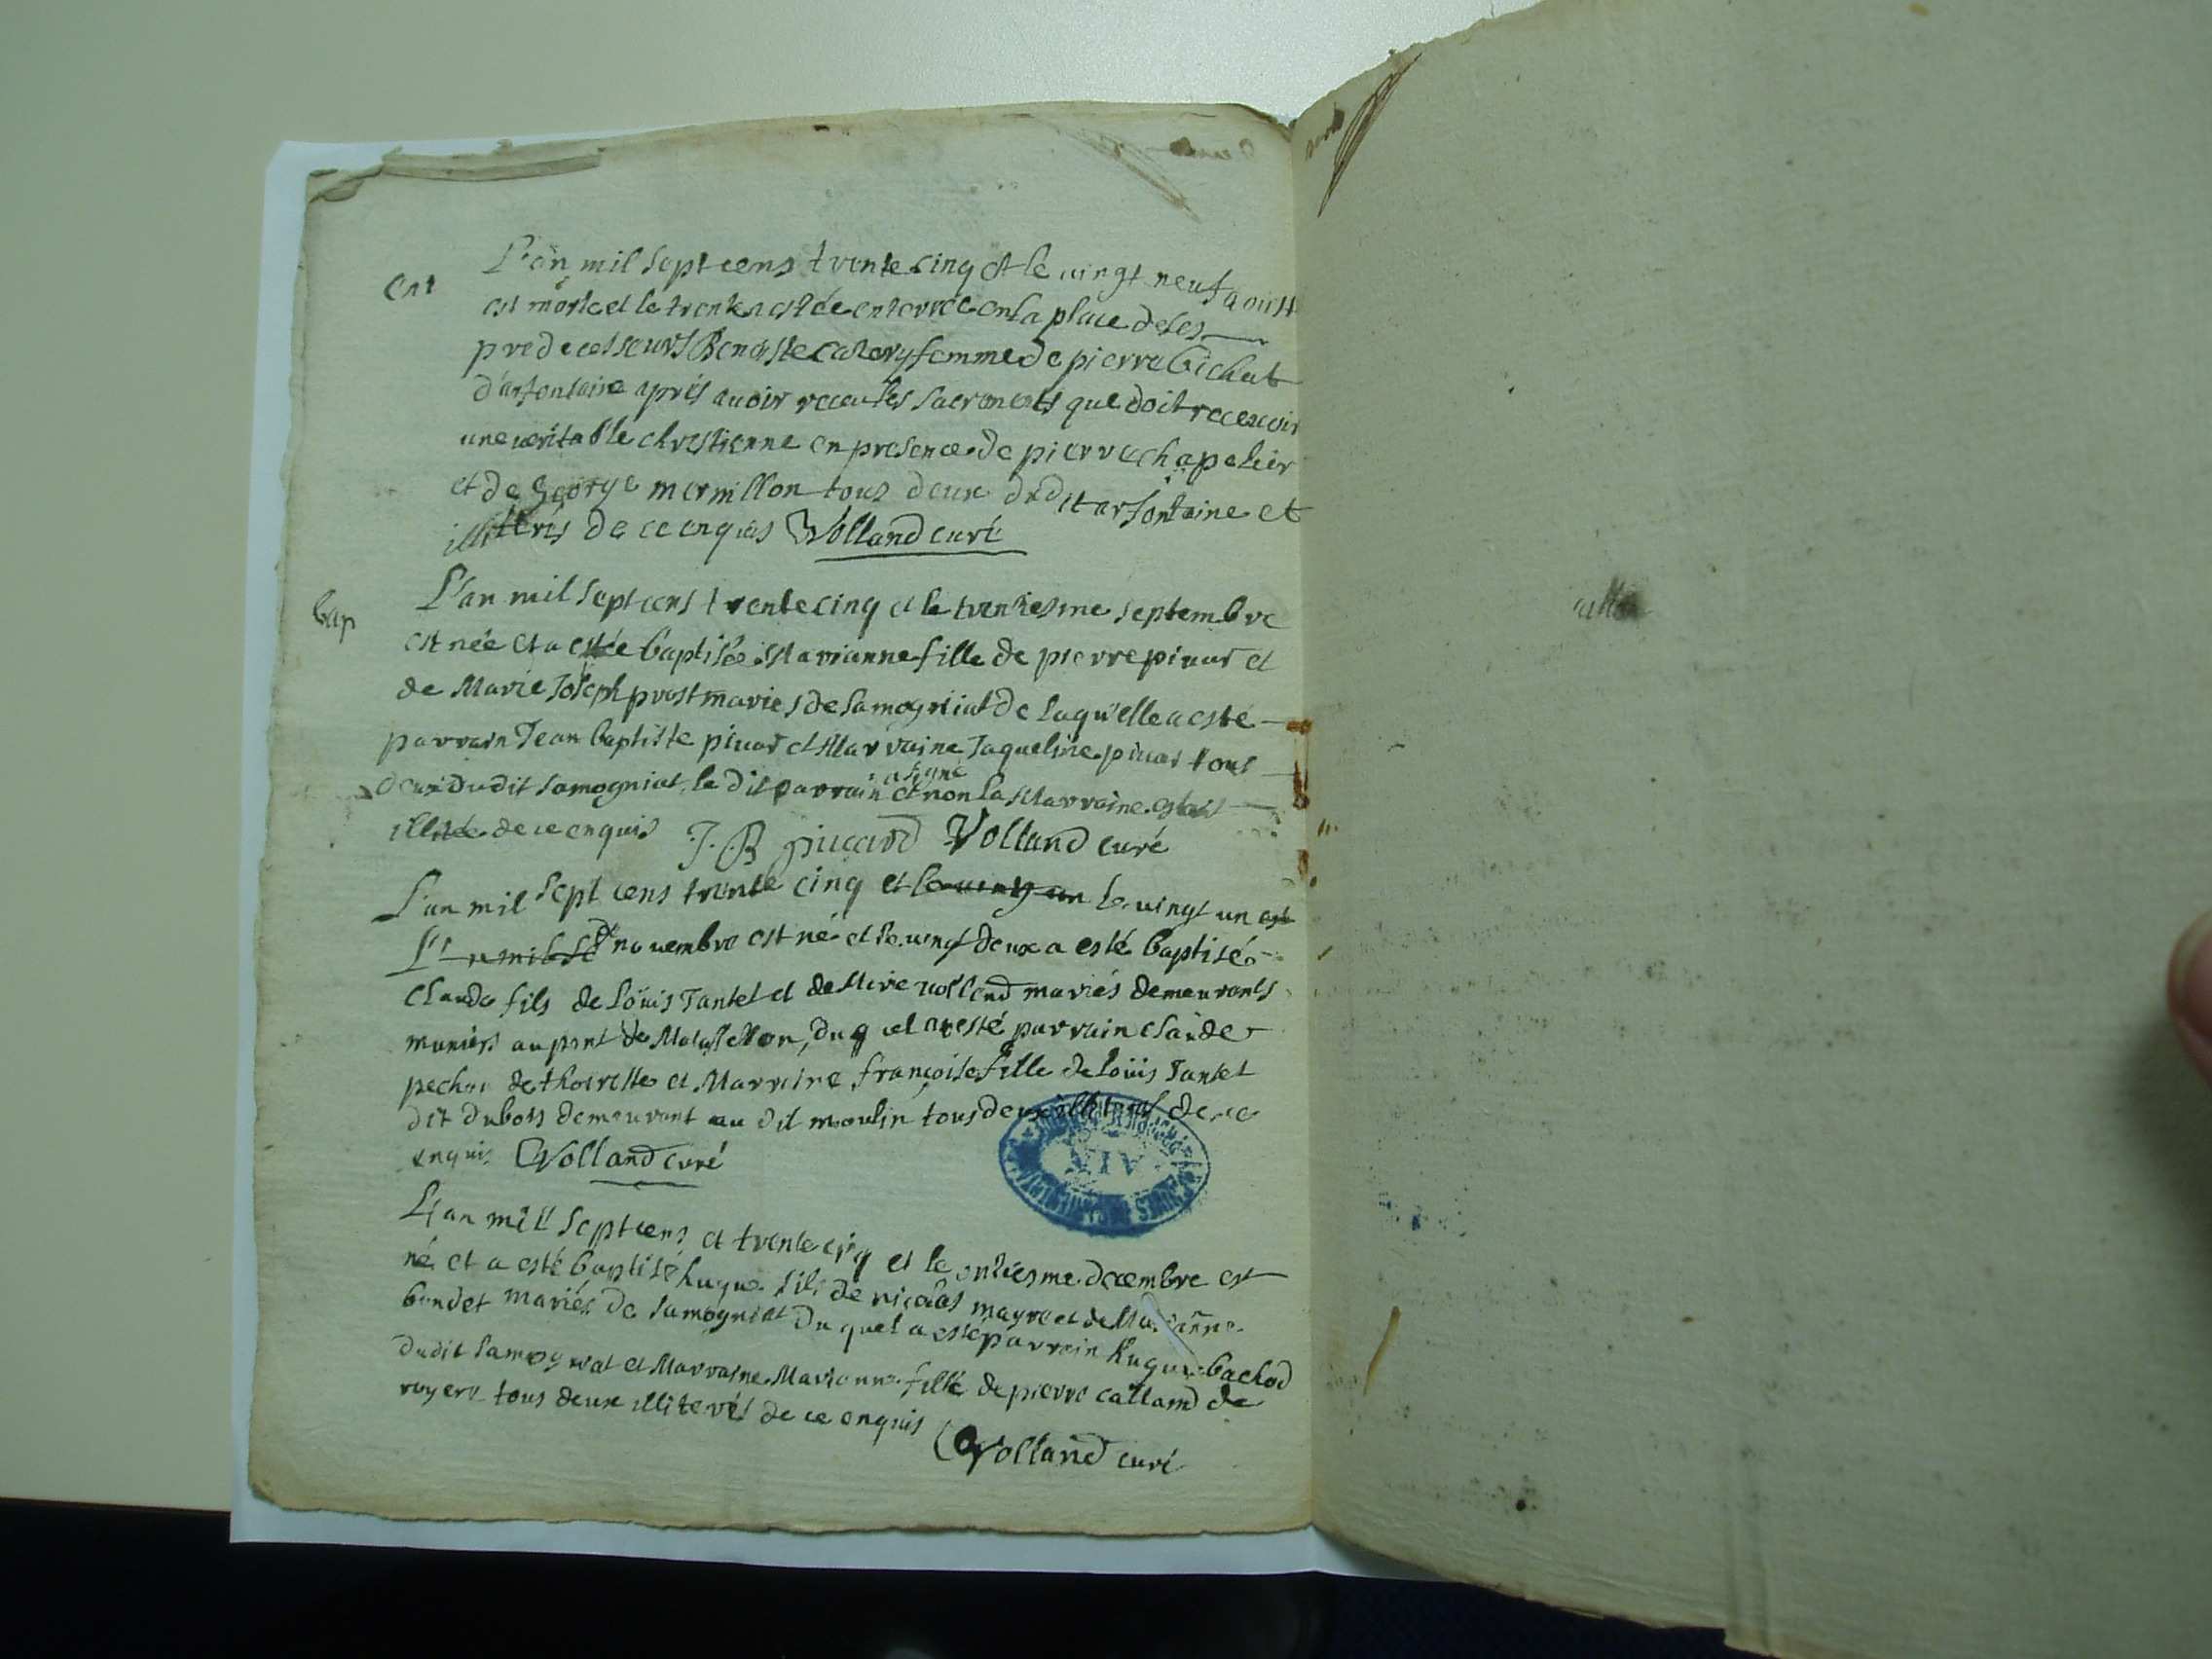 Ent
L'an mil sept cens trente cinq et le vingt neuf aoust
est morte et le trente a estée enterrée en la place de ses
predecesseurs Benoiste femme de pierre bichat
d'arfontaine aprés avoir receu les sacrements que doit recevoir
une veritable chrestienne en presence de pierre chapelier
et de george mermillon tous deux dudit arfontaine et
illiterés de ce enquis Volland curé
bap
L'an mil sept cens trente cinq et le trentiesme septembre
est née et a estée baptisée Marianne fille de pierre pivar et
de Marie Joseph prost mariés de samogniat de laquelle a esté
parrain Jean baptiste pivar et Marraine Jaqueline pivar tous
deux dudit samogniat, le dit parrain a signé et non la Marraine
de ce enquis J. B Volland curé
L'an mil sept cens trente cinq et le vingt un
novembre est né et le vingt deux a esté baptisé
Claude fils de Loüis Tantet et de volland mariés demeurants
muniers au pont de duquel a esté parrain claude
de thoirette et Marraine françoise fille de Loüis Tantet
dit dubois demeurant au dit moulin tous deux illiterés de ce
enquis Volland curé
L'an mil sept cens et trente cinq et le onziesme decembre est
né et a esté baptisé hugue fils de nicolas mayre et de Marianne
bondet mariés de samogniat du quel a esté parrain hugue bachod
dudit samogniat et Marraine Marianne fille de pierre calland de
tous deux illiterés de ce enquis
Volland curé
AIN